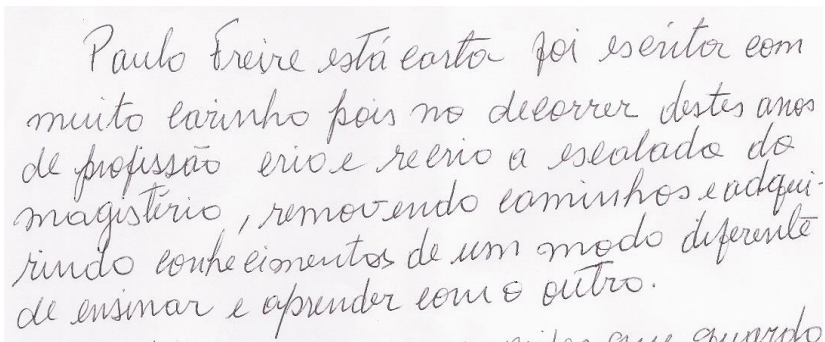 Paulo Freire está carta foi escrita com
muito carinho pois no decorrer destes anos
de profissão crio e recrio a escalada do
magistério, removendo caminhos e adqui-
rindo conhecimentos de um modo diferente
de ensinar e aprender com o outro.
que guardo